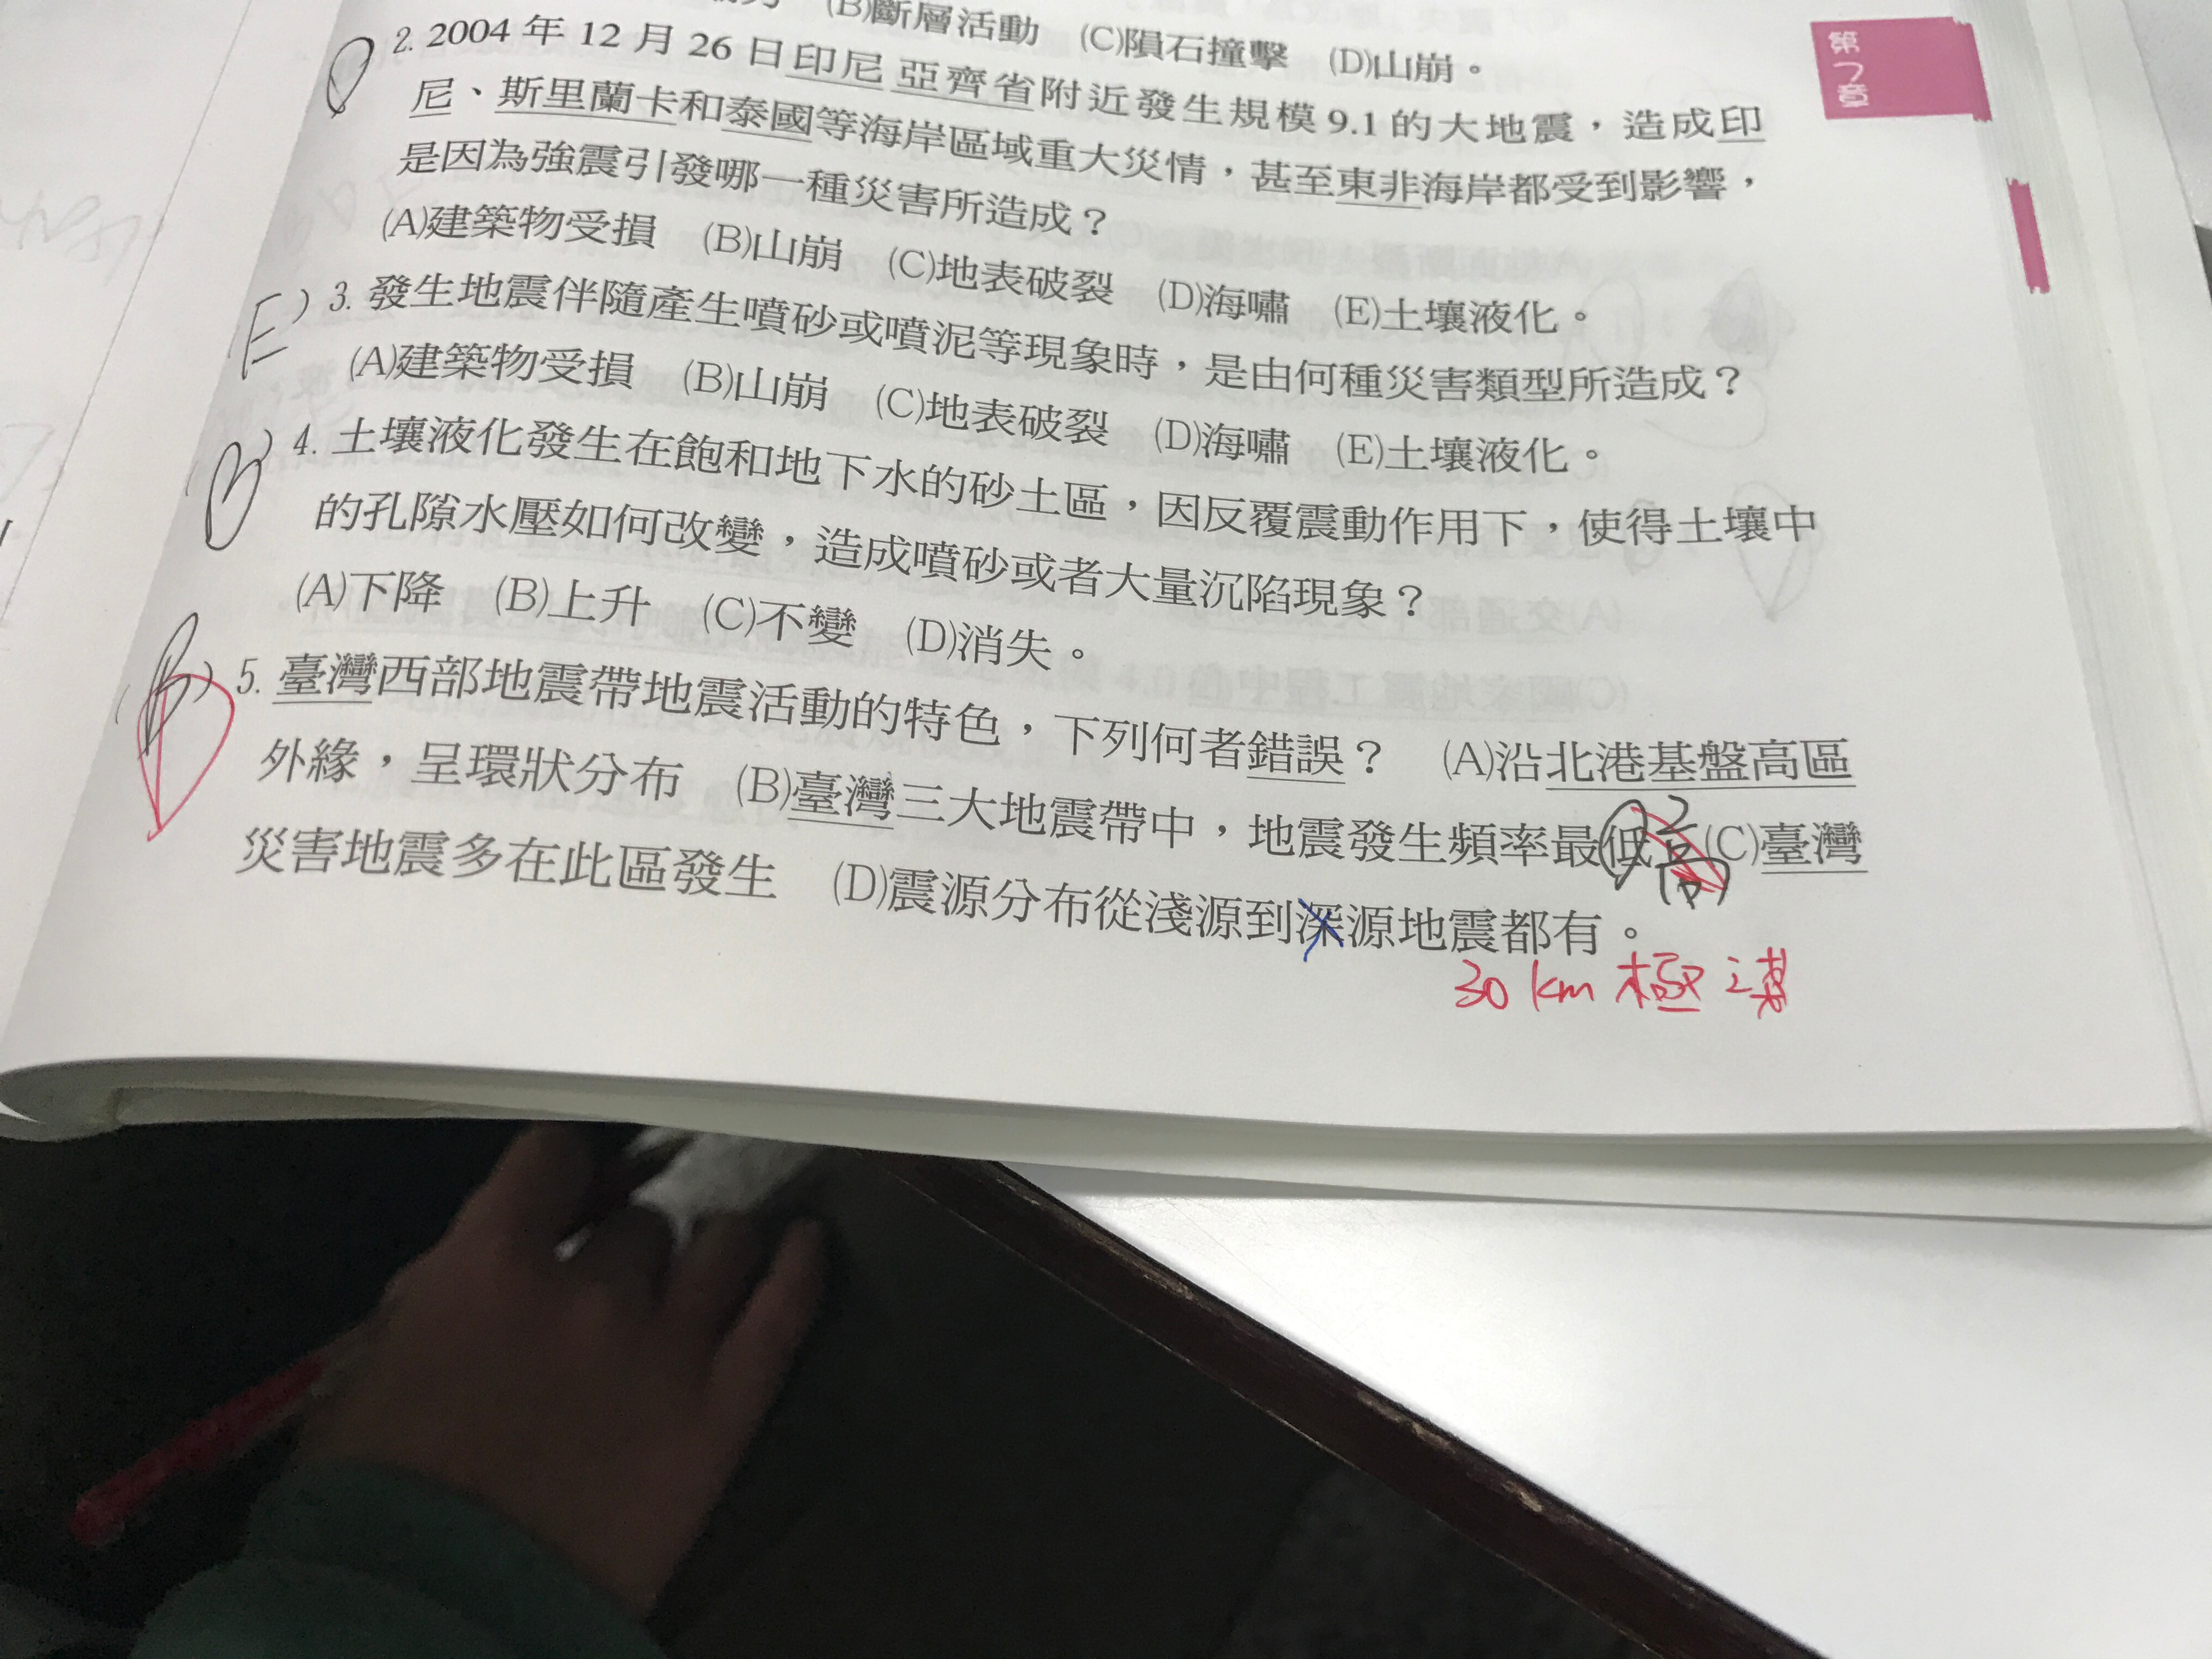 (B)斷層活動 (C)隕石撞擊 (D)山崩。
第7章
D 2. 2004 年 12 月 26 日印尼 亞齊省附近發生規模 9.1 的大地震，造成印
尼、斯里蘭卡和泰國等海岸區域重大災情，甚至東非海岸都受到影響，
是因為強震引發哪一種災害所造成？
(A)建築物受損 (B)山崩 (C)地表破裂 (D)海嘯 (E)土壤液化。
E ) 3. 發生地震伴隨產生噴砂或噴泥等現象時，是由何種災害類型所造成？
(A)建築物受損 (B)山崩 (C)地表破裂 (D)海嘯 (E)土壤液化。
(B) 4. 土壤液化發生在飽和地下水的砂土區，因反覆震動作用下，使得土壤中
的孔隙水壓如何改變，造成噴砂或者大量沉陷現象？
(A)下降 (B)上升 (C)不變 (D)消失。
(B) 5. 臺灣西部地震帶地震活動的特色，下列何者錯誤？ (A)沿北港基盤高區
外緣，呈環狀分布 (B)臺灣三大地震帶中，地震發生頻率最低 高 (C)臺灣
災害地震多在此區發生 (D)震源分布從淺源到深源地震都有。
30 km 極淺